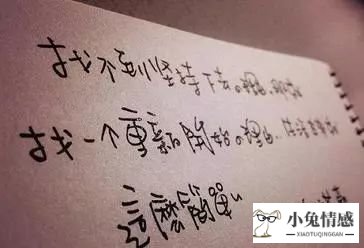 找不到坚持下去的理由,那就
找一个重新開始的理由,生活本来就
這麼簡單
小兔情感
XIAOTUQINGGAN